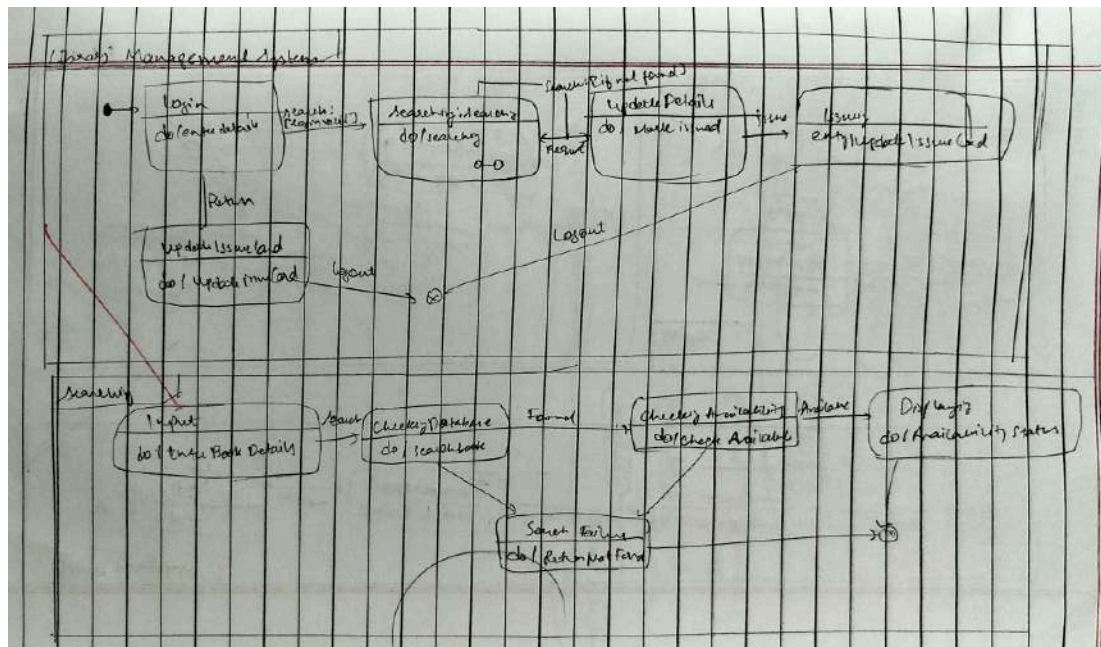 Library Management System
Login
do/enter details
search:
[login valid]
Searching:searching
do/searching
Search [if not found]
Request
Update Details
do/ Mark issued
issue
Issue
entry/update IssueCard
Return
Update Issue Card
do/ Update Issue Card
logout
Logout
Searching
Input
do/ Enter Book Details
search
Checking Database
do/ search book
Found
Checking Availability
do/check Available
Available
Displaying
do/Availability Status
Search Failure
do/ Return Not Found